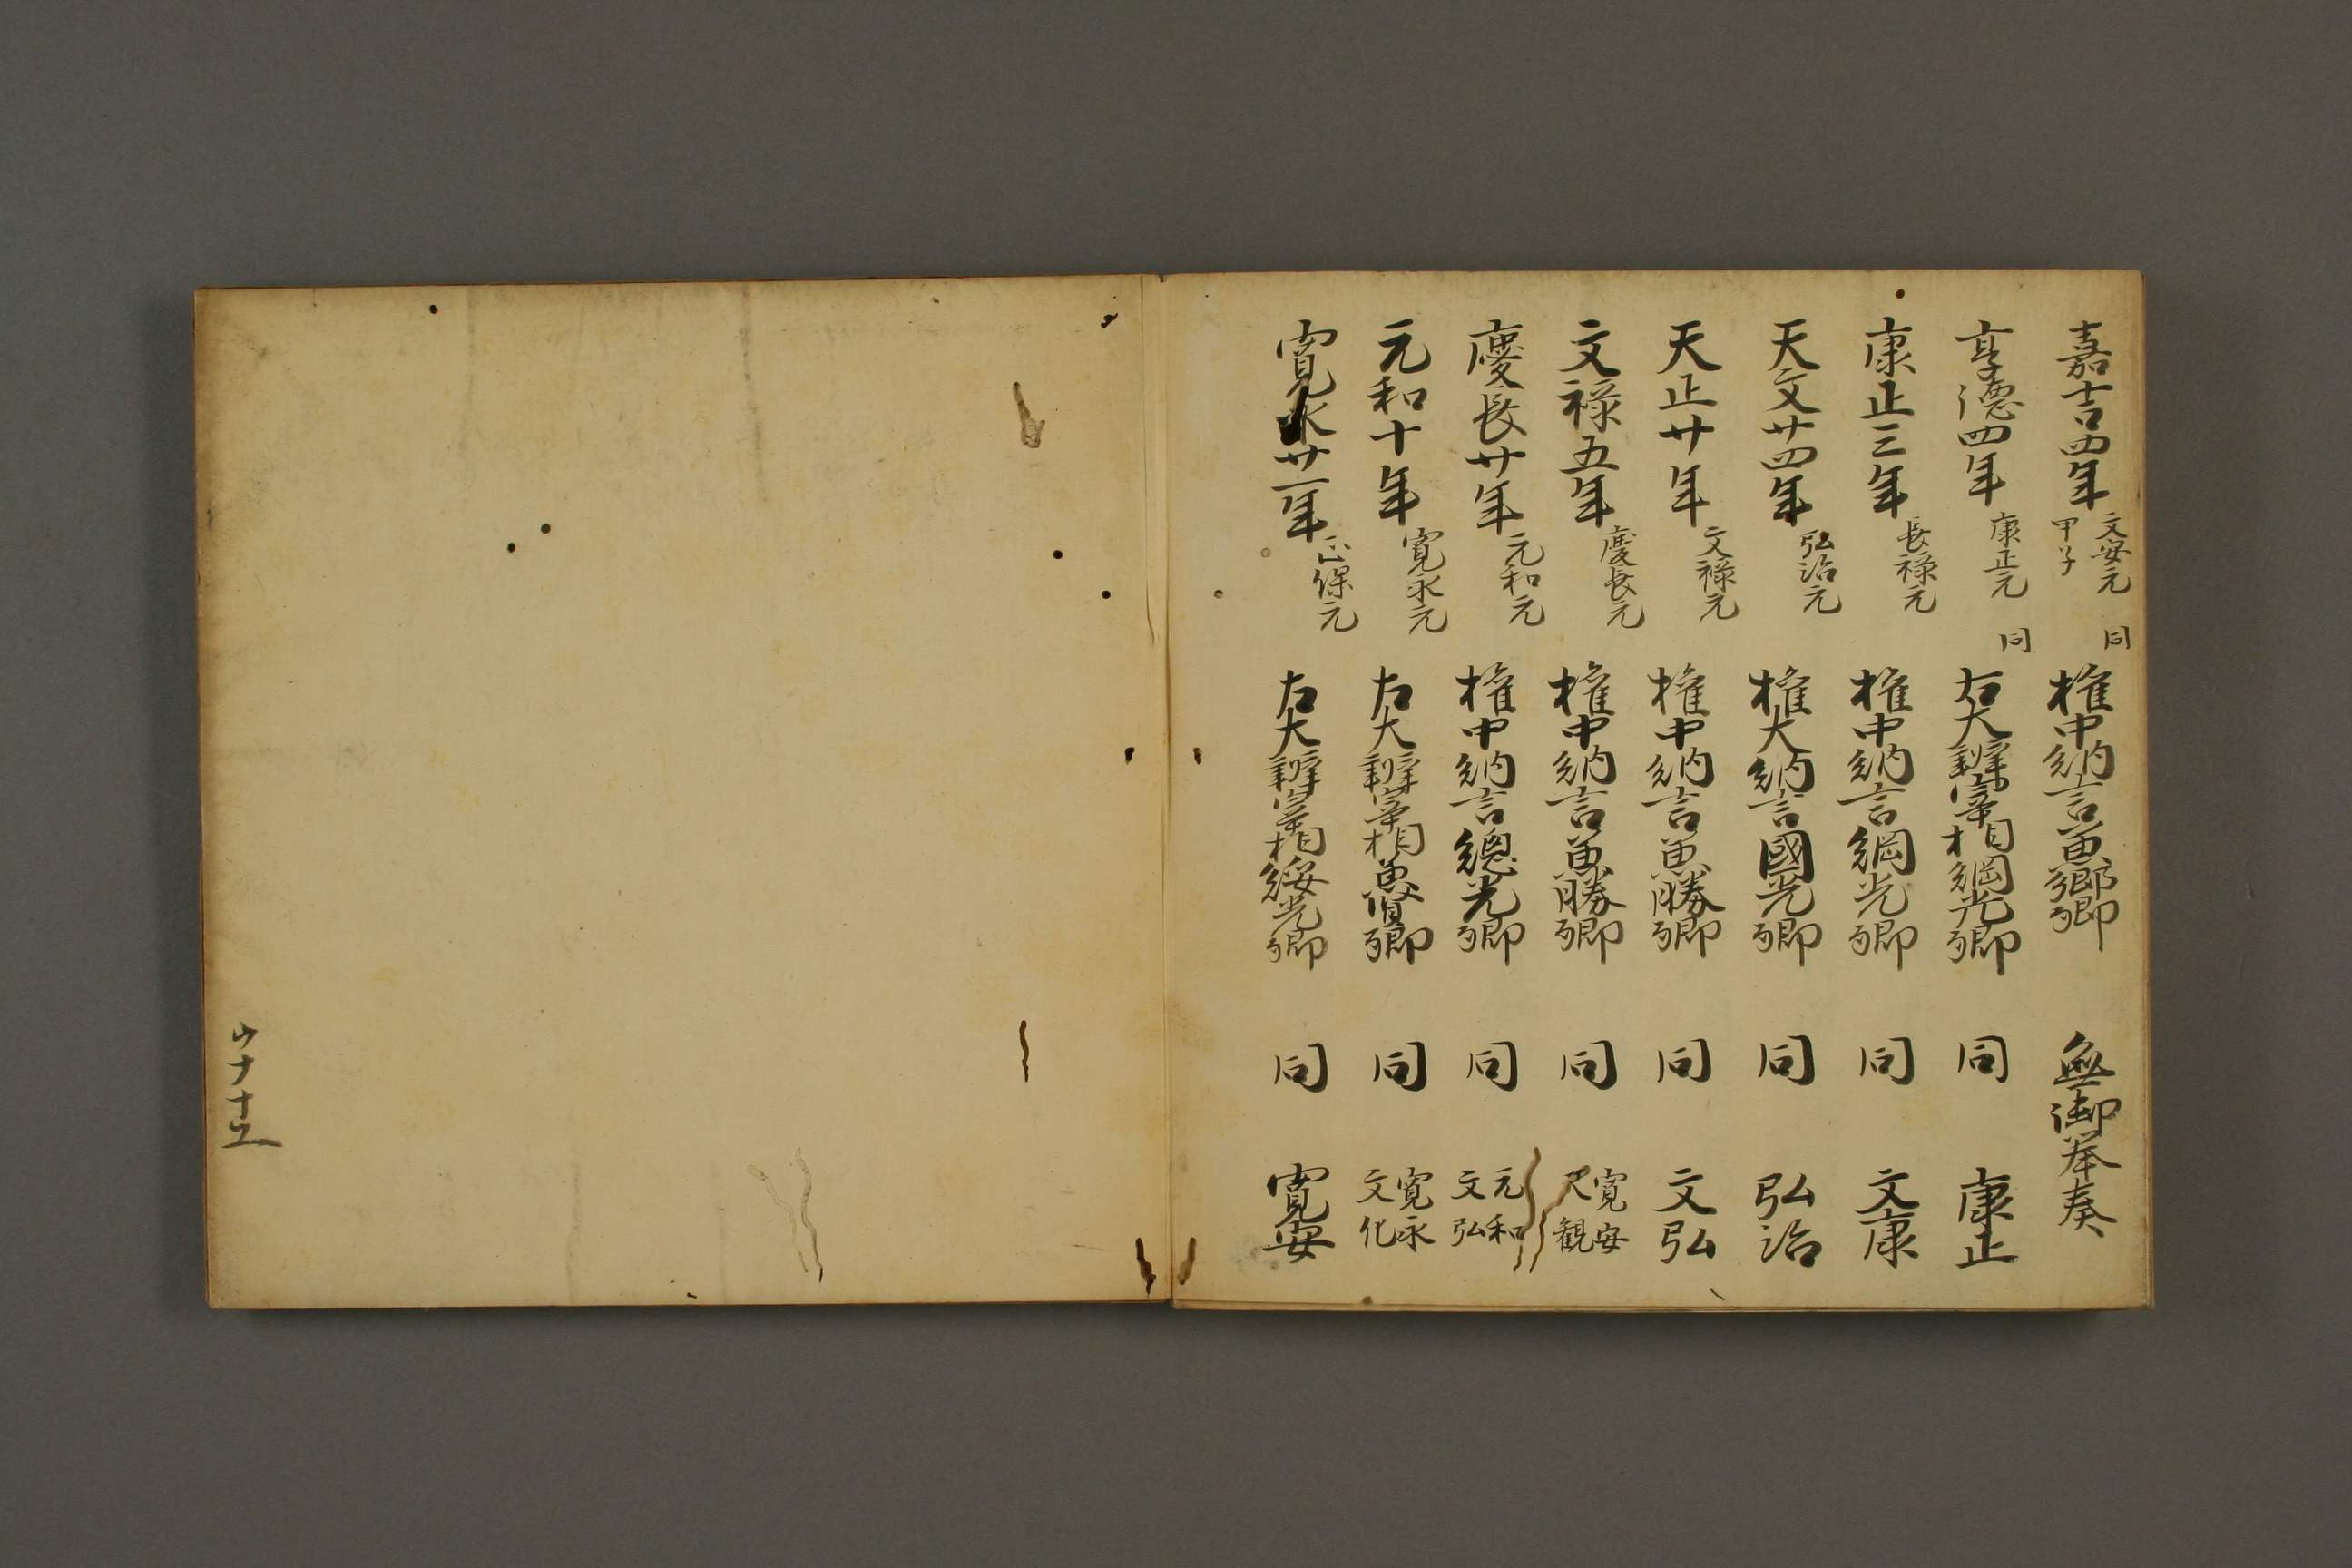 嘉吉四年 文安元 甲子 同 権中納言兼郷卿 無御挙奏
享徳四年 康正元 同 右大辨宰相綱光卿 同 康正
康正三年 長禄元 権中納言綱光卿 同 文康
天文廿四年 弘治元 権大納言國光卿 同 弘治
天正廿年 文禄元 権中納言兼勝卿 同 文弘
文禄五年 慶長元 権中納言兼勝卿 同 寛安
慶長廿年 元和元 権中納言總光卿 同 元和 文弘
元和十年 寛永元 右大辨宰相兼賢卿 同 寛永 文化
寛永廿一年 正保元 右大辨宰相綏光卿 同 寛安